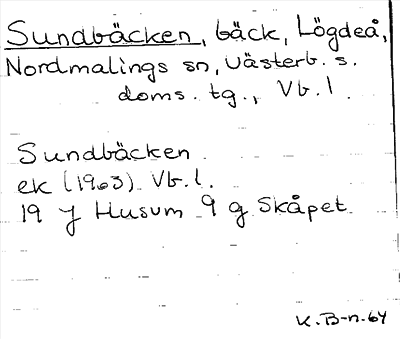 Sundbäcken, bäck, Lögdeå,
Nordmalings sn, Västerb. s.
doms. tg., Vb. l.
Sundbäcken
ek (1963) Vb. l.
19 J Husum 9 g Skåpet
K. B-n. 64